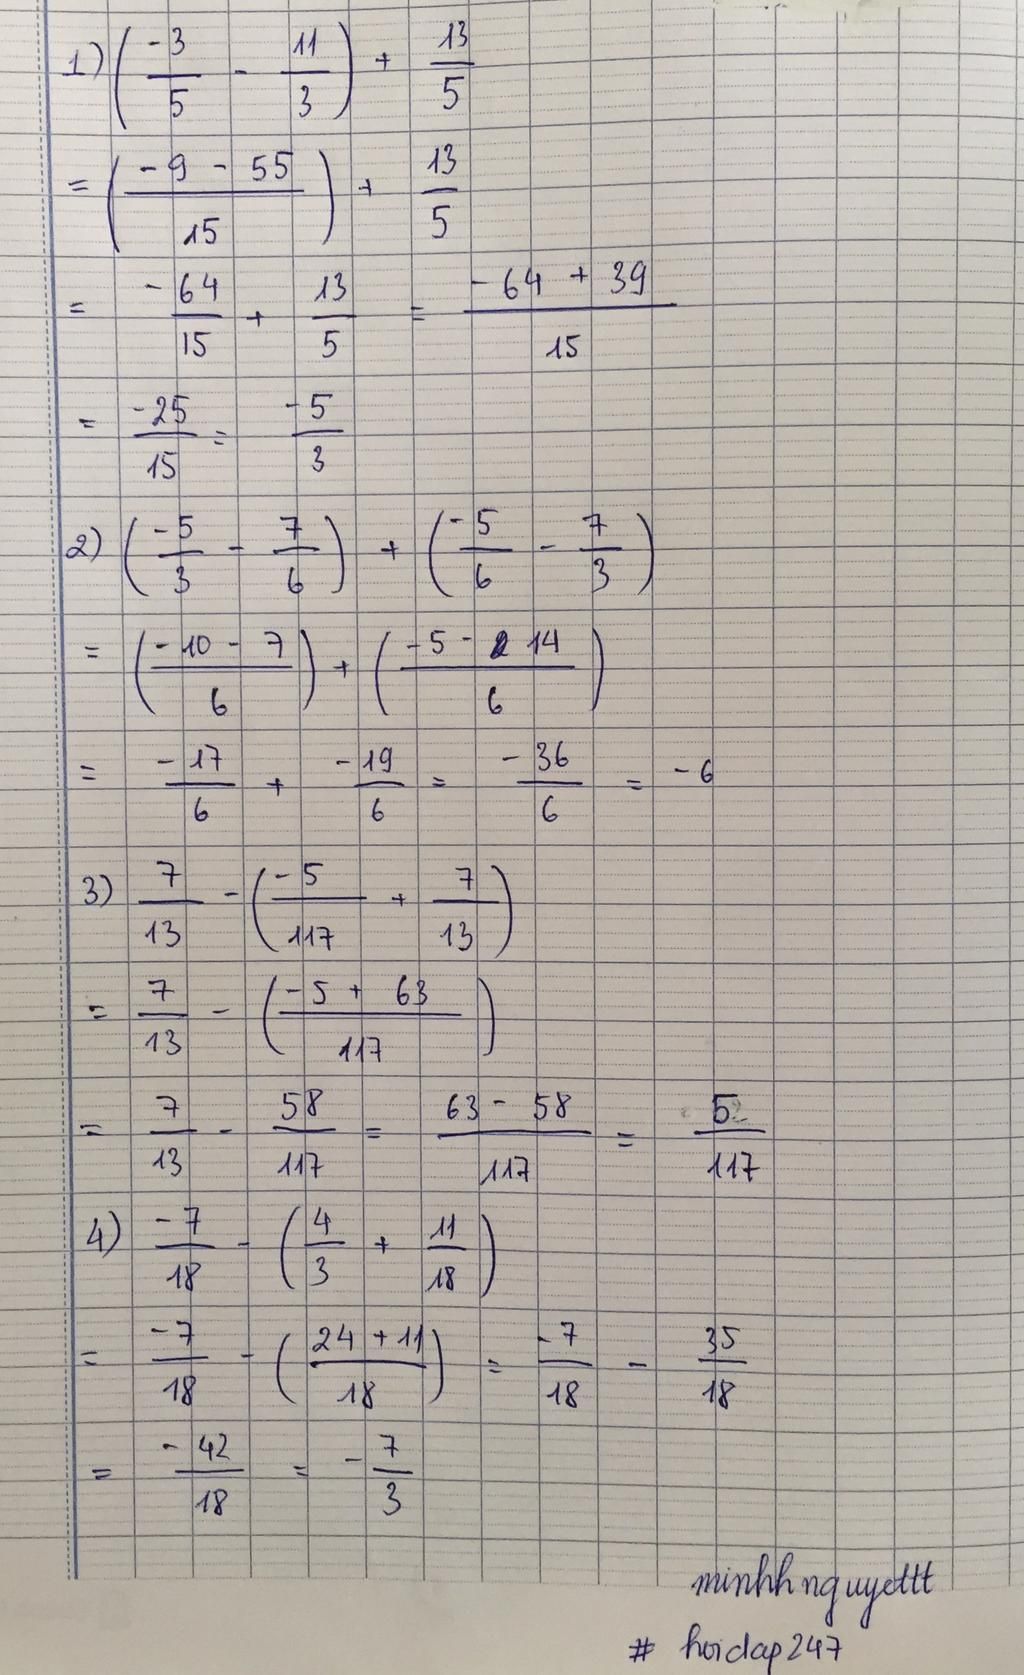 1) (-3/5 - 11/3) + 13/5
= (-9 - 55 / 15) + 13/5
= -64/15 + 13/5 = -64 + 39 / 15
= -25/15 = -5/3
2) (-5/3 - 7/6) + (-5/6 - 7/3)
= (-10 - 7 / 6) + (-5 - 14 / 6)
= -17/6 + -19/6 = -36/6 = -6
3) 7/13 - (-5/117 + 7/13)
= 7/13 - (-5 + 63 / 117)
= 7/13 - 58/117 = 63 - 58 / 117 = 5/117
4) -7/18 - (4/3 + 11/18)
= -7/18 - (24 + 11 / 18) = -7/18 - 35/18
= -42/18 = -7/3
minhhnguyettt
# hoidap247